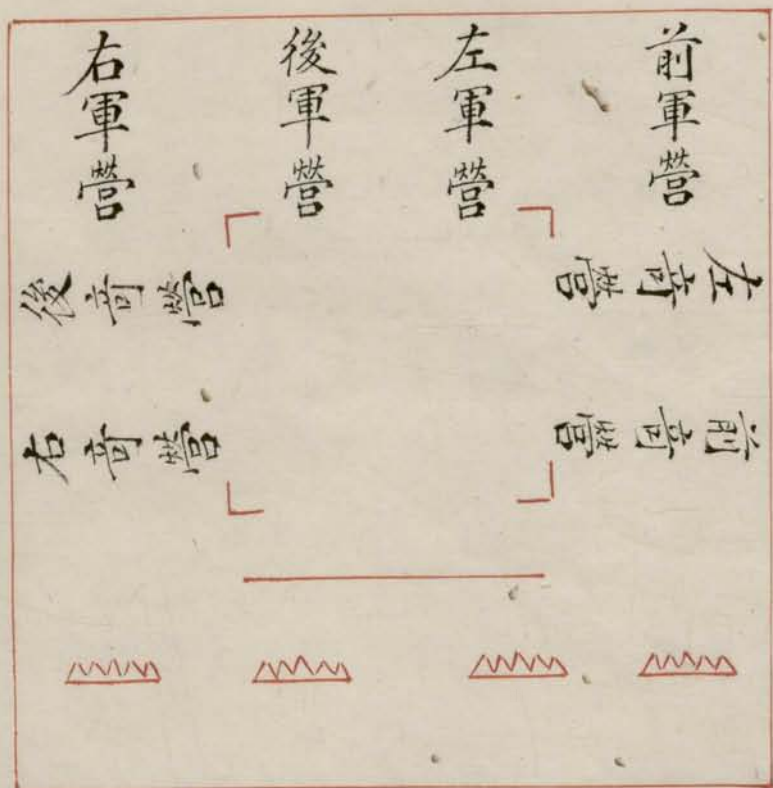 前軍營
左軍營
後軍營
右軍營
左竒營
前竒營
後竒營
右竒營